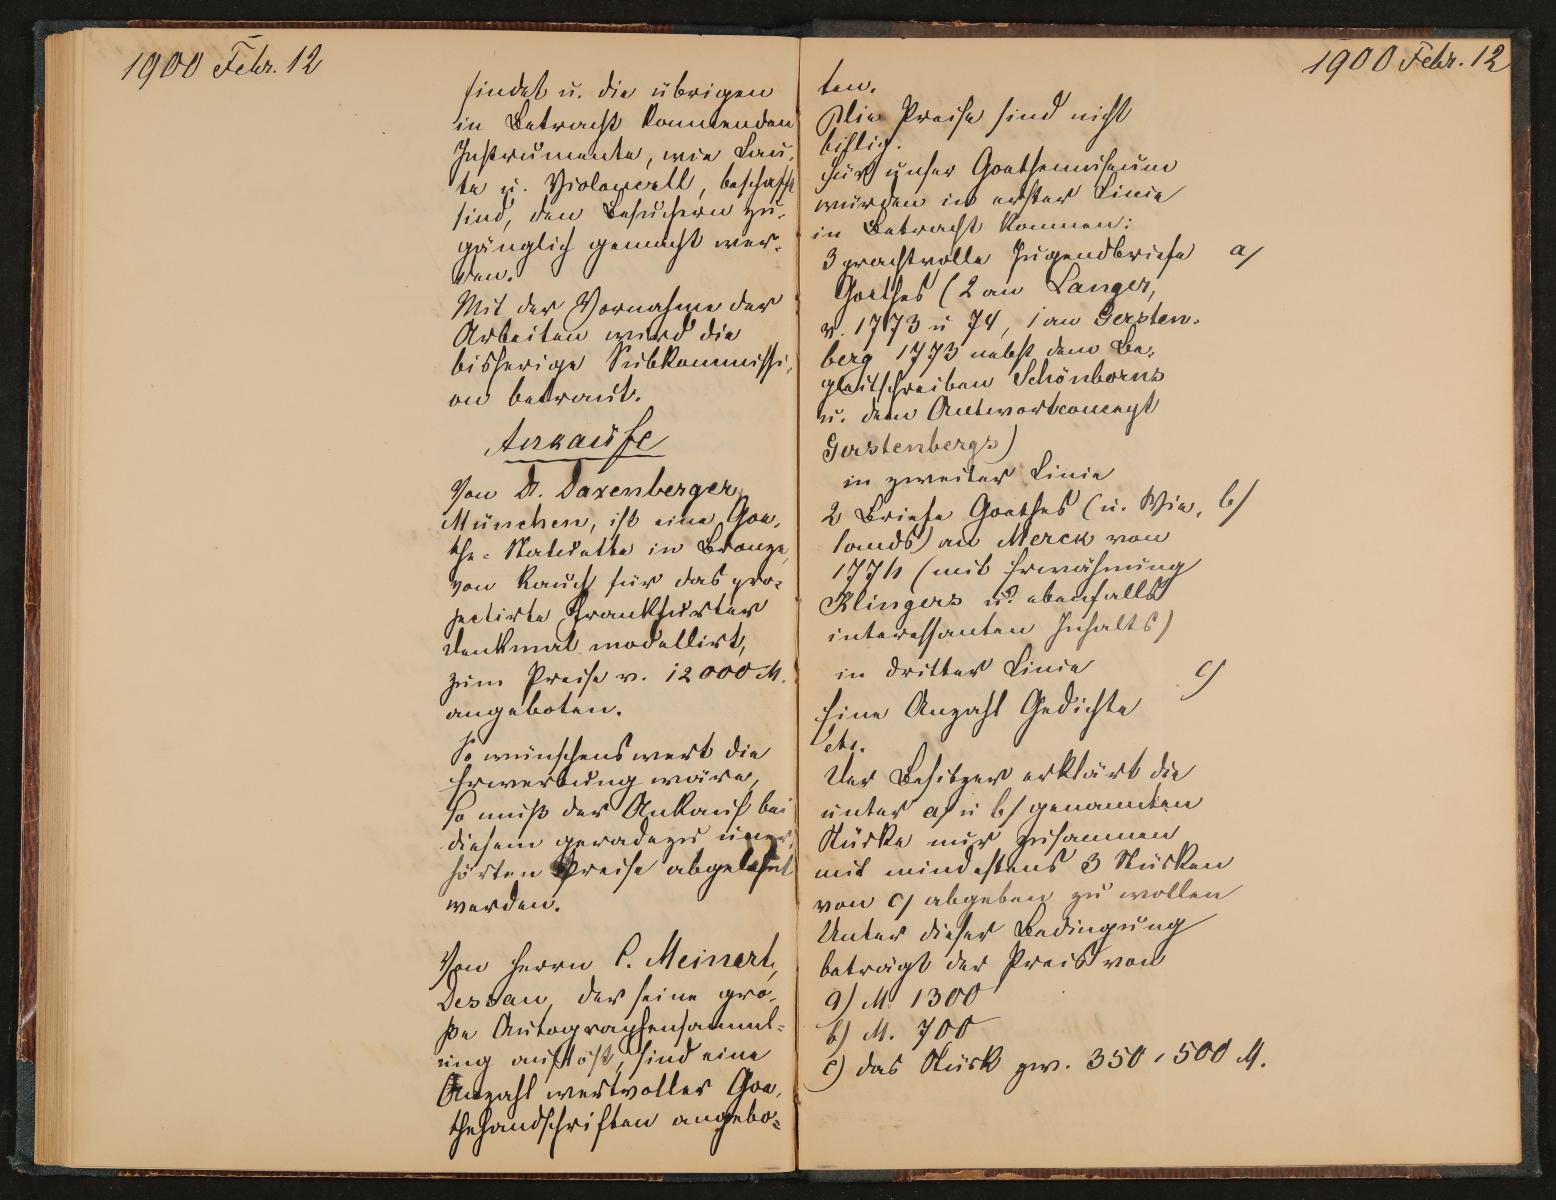 1900 Febr. 12
findet u. die übrigen
in Betracht kommenden
Instrumente, wie Lau-
te u. Violoncell, beschafft
sind, den Besuchern zu-
gänglich gemacht wer-
den.
Mit der Vornahme der
Arbeiten wird die
bisherige Subkommissi-
on betraut.
Ankäufe
Von Dr. Daxenberger,
München, ist eine Goe-
the-Statuette in Bronze,
von Rauch für das pro-
jectirte Frankfurter
Denkmal modellirt,
zum Preise v. 12000 M.
angeboten.
So wünschenswert die
Erwerbung wäre,
so muß der Ankauf bei
diesem geradezu uner-
hörten Preise abgelehnt
werden.
Von Herrn C. Meinert,
Dessau, der seine gro-
ße Autographensamml-
ung auflöst, sind eine
Anzahl wertvoller Goe-
thehandschriften angebo-
1900 Febr. 12
ten.
Die Preise sind nicht
billig.
Für unser Goethemuseum
würden in erster Linie
in Betracht kommen:
3 prachtvolle Jugendbriefe a/
Goethes (2 an Langer,
v. 1773 u 74, 1 an Gersten-
berg 1773 nebst dem Be-
gleitschreiben Schönborns
u. dem Antwortconcept
Gerstenbergs)
in zweiter Linie
2 Briefe Goethes (u. Wie- b/
lands) an Merck von
1776 (mit Erwähnung
Klingers u. ebenfalls
interessanten Inhalts)
in dritter Linie c/
Eine Anzahl Gedichte
etc.
Der Besitzer erklärt die
unter a/ u b/ genannten
Stücke nur zusammen
mit mindestens 3 Stücken
von c/ abgeben zu wollen
Unter dieser Bedingung
beträgt der Preis von
a) M. 1300
b) M. 700
c) das Stück zw. 350 - 500 M.